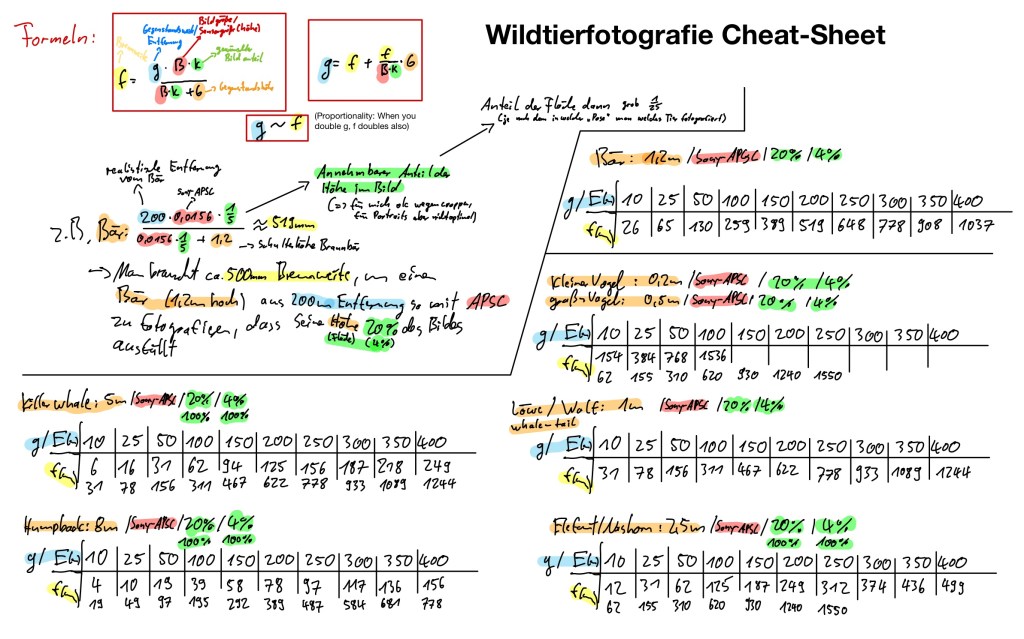 Wildtierfotografie Cheat-Sheet
Formeln:
Brennweite
Gegenstandsweite/
Entfernung
Bildgröße/
Sensorgröße (Höhe)
gewünschter
Bildanteil
f = g · B · k / B · k + G
Gegenstandshöhe
g = f + f / B·k · G
g ~ f
(Proportionality: When you
double g, f doubles also)
Anteil der Fläche dann grob 1/25
(je nachdem in welcher „Pose" man welches Tier fotografiert)
realistische Entfernung
vom Bär
Sony-APSC
Annehmbarer Anteil der
Höhe im Bild
(=> für mich ok wegen croppen,
für Portraits aber nicht optimal)
z.B. Bär: 200 · 0,0156 · 1/5 / 0,0156 · 1/5 + 1,2 ≈ 519mm
Schulterhöhe Braunbär
→ Man braucht ca. 500mm Brennweite, um einen
Bär (1,2m hoch) aus 200m Entfernung so mit APSC
zu fotografieren, dass seine Höhe 20% des Bildes
(Fläche) (4%)
ausfüllt
Bär: 1,2m / Sony-APSC / 20% / 4%
g / E(m) 10 25 50 100 150 200 250 300 350 400
f(mm) 26 65 130 259 389 519 648 778 908 1037
Kleine Vogel: 0,2m / Sony-APSC / 20% / 4%
große Vogel: 0,5m / Sony-APSC / 20% / 4%
g / E(m) 10 25 50 100 150 200 250 300 350 400
f(mm) 154 384 768 1536
62 155 310 620 930 1240 1550
Killer whale: 5m / Sony-APSC / 20% / 4%
100% 100%
g / E(m) 10 25 50 100 150 200 250 300 350 400
f(mm) 6 16 31 62 94 125 156 187 218 249
31 78 156 311 467 622 778 933 1089 1244
Löwe / Wolf: 1m / Sony-APSC / 20% / 4%
whale-tail
g / E(m) 10 25 50 100 150 200 250 300 350 400
f(mm) 31 78 156 311 467 622 778 933 1089 1244
Humpback: 8m / Sony-APSC / 20% / 4%
100% 100%
g / E(m) 10 25 50 100 150 200 250 300 350 400
f(mm) 4 10 19 39 58 78 97 117 136 156
19 49 97 195 292 389 487 584 681 778
Elefant/Nashorn: 2,5m / Sony-APSC / 20% / 4%
100% 100%
g / E(m) 10 25 50 100 150 200 250 300 350 400
f(mm) 12 31 62 125 187 249 312 374 436 499
62 155 310 620 930 1240 1550